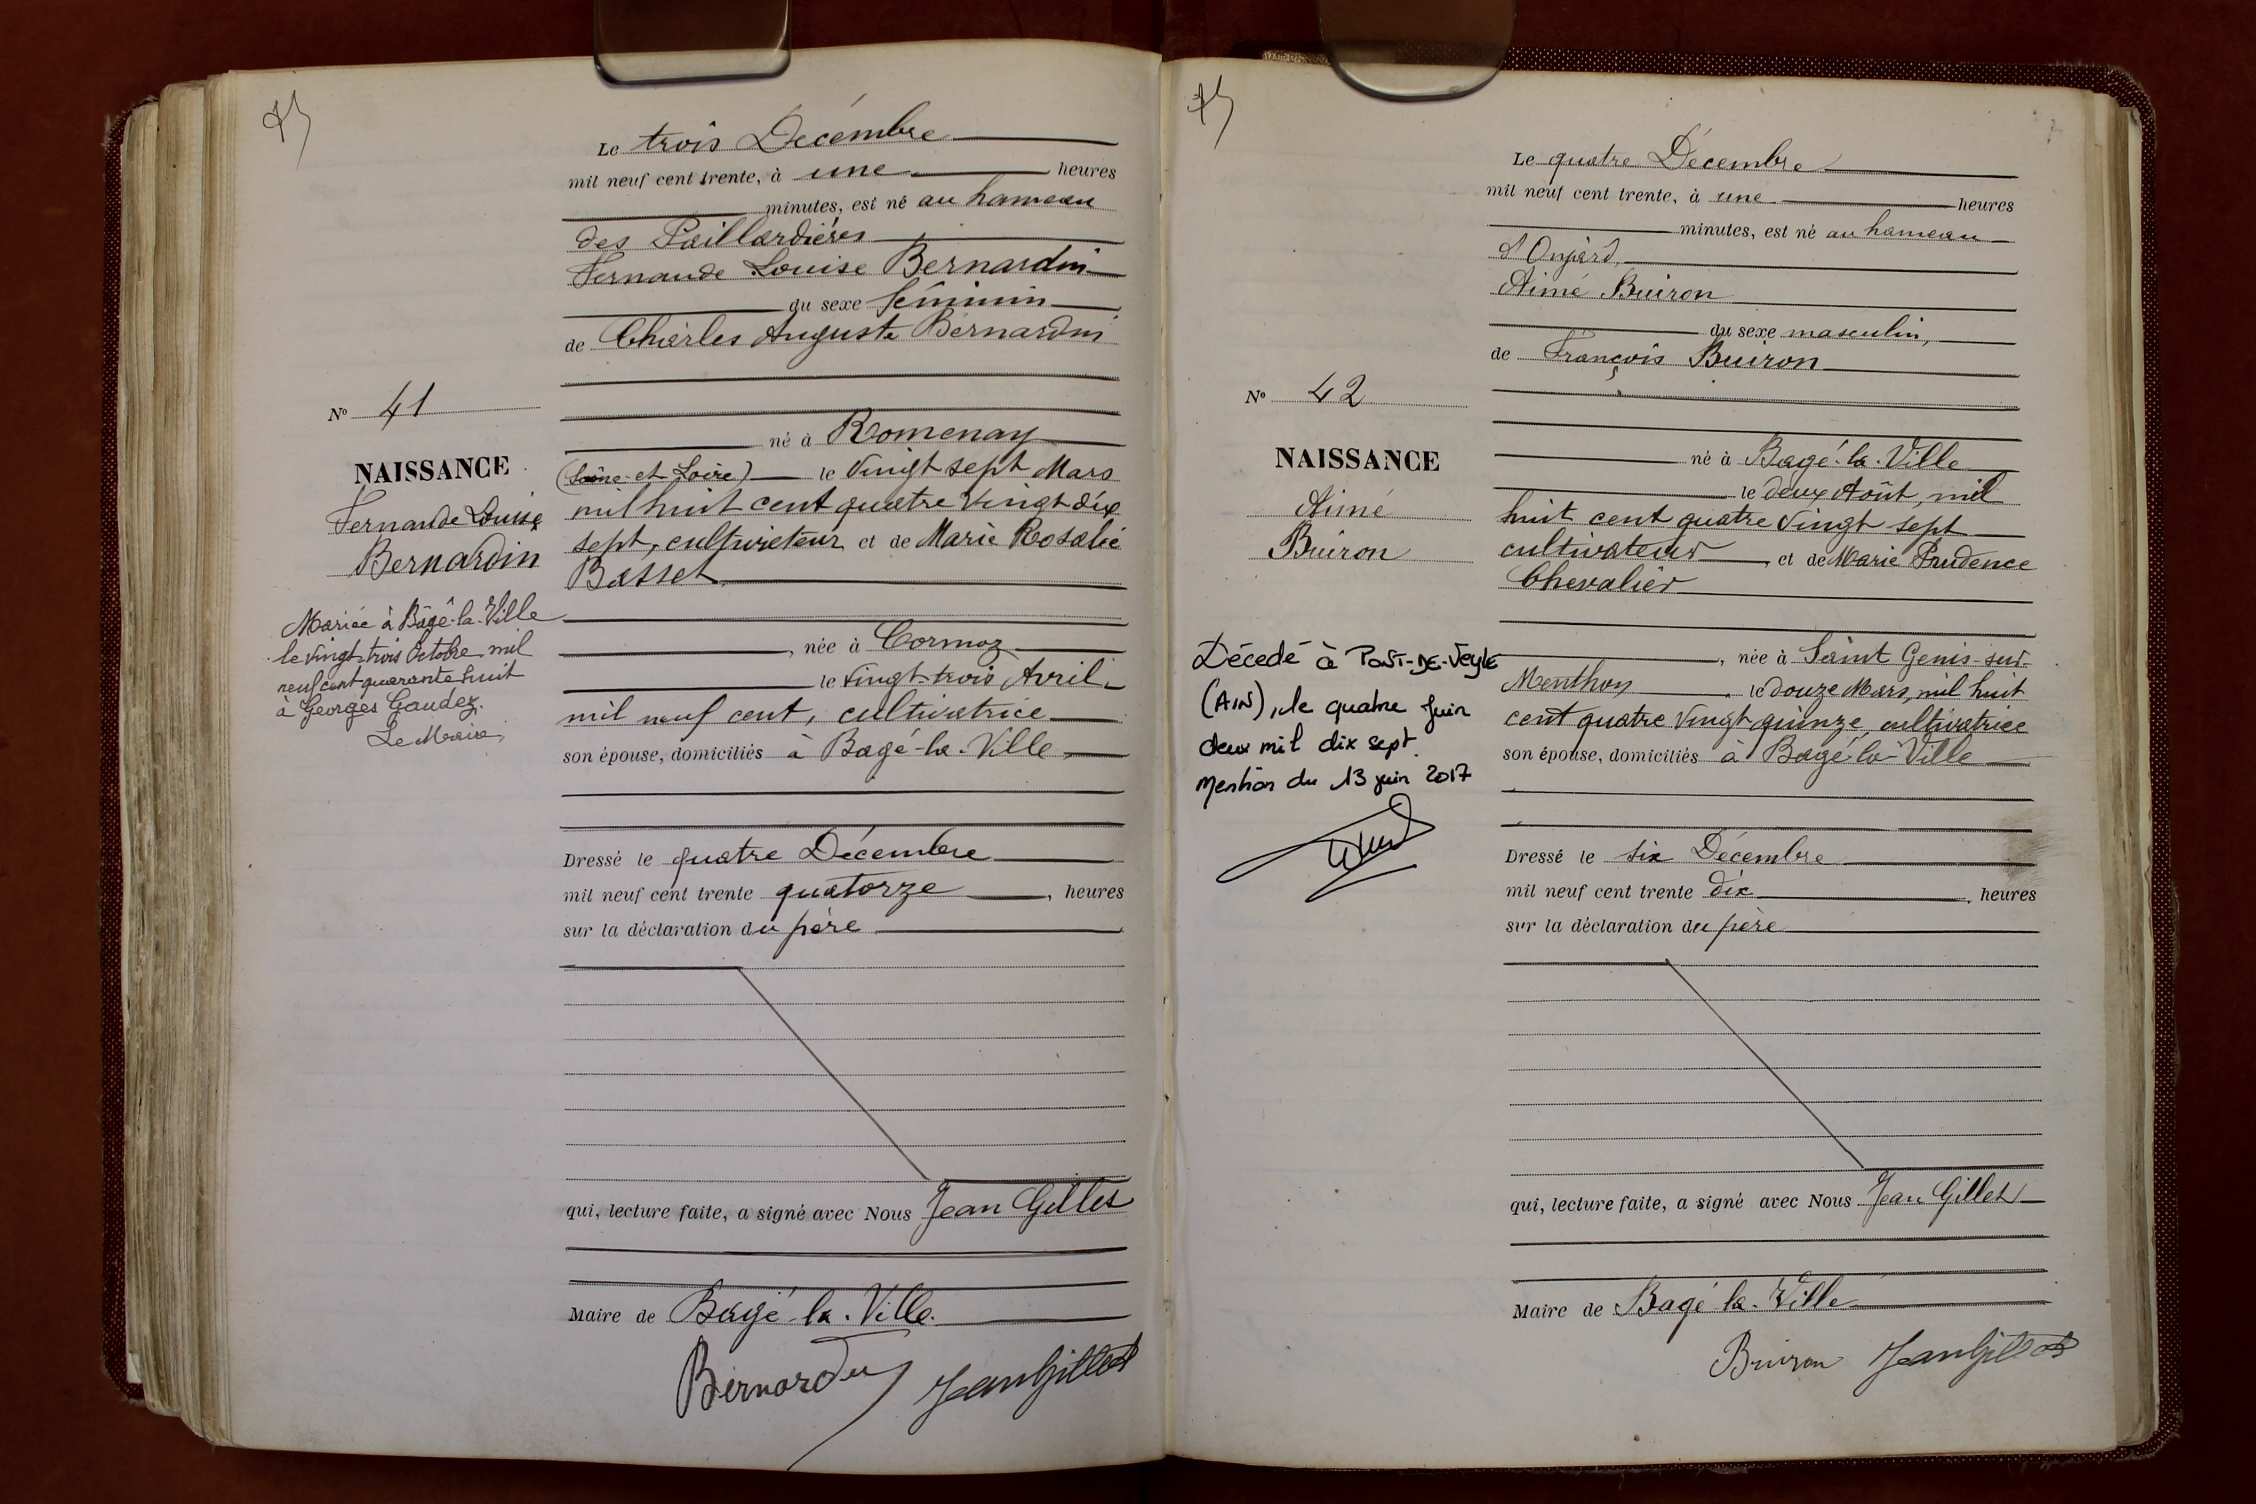 Le trois Décembre
mil neuf cent trente, à une heures
minutes, est né au hameau
des Paillardières
Fernande Louise Bernardin
du sexe féminin
de Charles Auguste Bernardin
né à Romenay
(Saône-et-Loire) le vingt sept Mars
mil huit cent quatre vingt dix
sept, cultivateur et de Marie Rosalie
Basset
, née à Cormoz
le vingt-trois Avril
mil neuf cent, cultivatrice
son épouse, domiciliés à Bagé-la-Ville
Dressé le quatre Décembre
mil neuf cent trente quatorze, heures
sur la déclaration du père
qui, lecture faite, a signé avec Nous Jean Gillet
Maire de Bagé-la-Ville.
Bernardin Jean Gillet
N° 41
NAISSANCE
Fernande Louise
Bernardin
Mariée à Bâgé-la-Ville
le vingt-trois Octobre mil
neuf cent quarante huit
à Georges Gaudez.
Le Maire,
Le quatre Décembre
mil neuf cent trente, à une heures
minutes, est né au hameau
Aimé Buiron
du sexe masculin,
de François Buiron
né à Bagé-la-Ville
le deux Août, mil
huit cent quatre vingt sept
cultivateur, et de Marie Prudence
Chevalier
, née à Saint Genis-sur-
Menthon, le douze Mars, mil huit
cent quatre vingt quinze, cultivatrice
son épouse, domiciliés à Bagé-la-Ville
Dressé le six Décembre
mil neuf cent trente dix, heures
sur la déclaration du père
qui, lecture faite, a signé avec Nous Jean Gillet
Maire de Bagé-la-Ville
Buiron Jean Gillet
N° 42
NAISSANCE
Aimé
Buiron
Décédé à PONT-DE-Veyle
(AIN), le quatre juin
deux mil dix sept.
Mention du 13 juin 2017